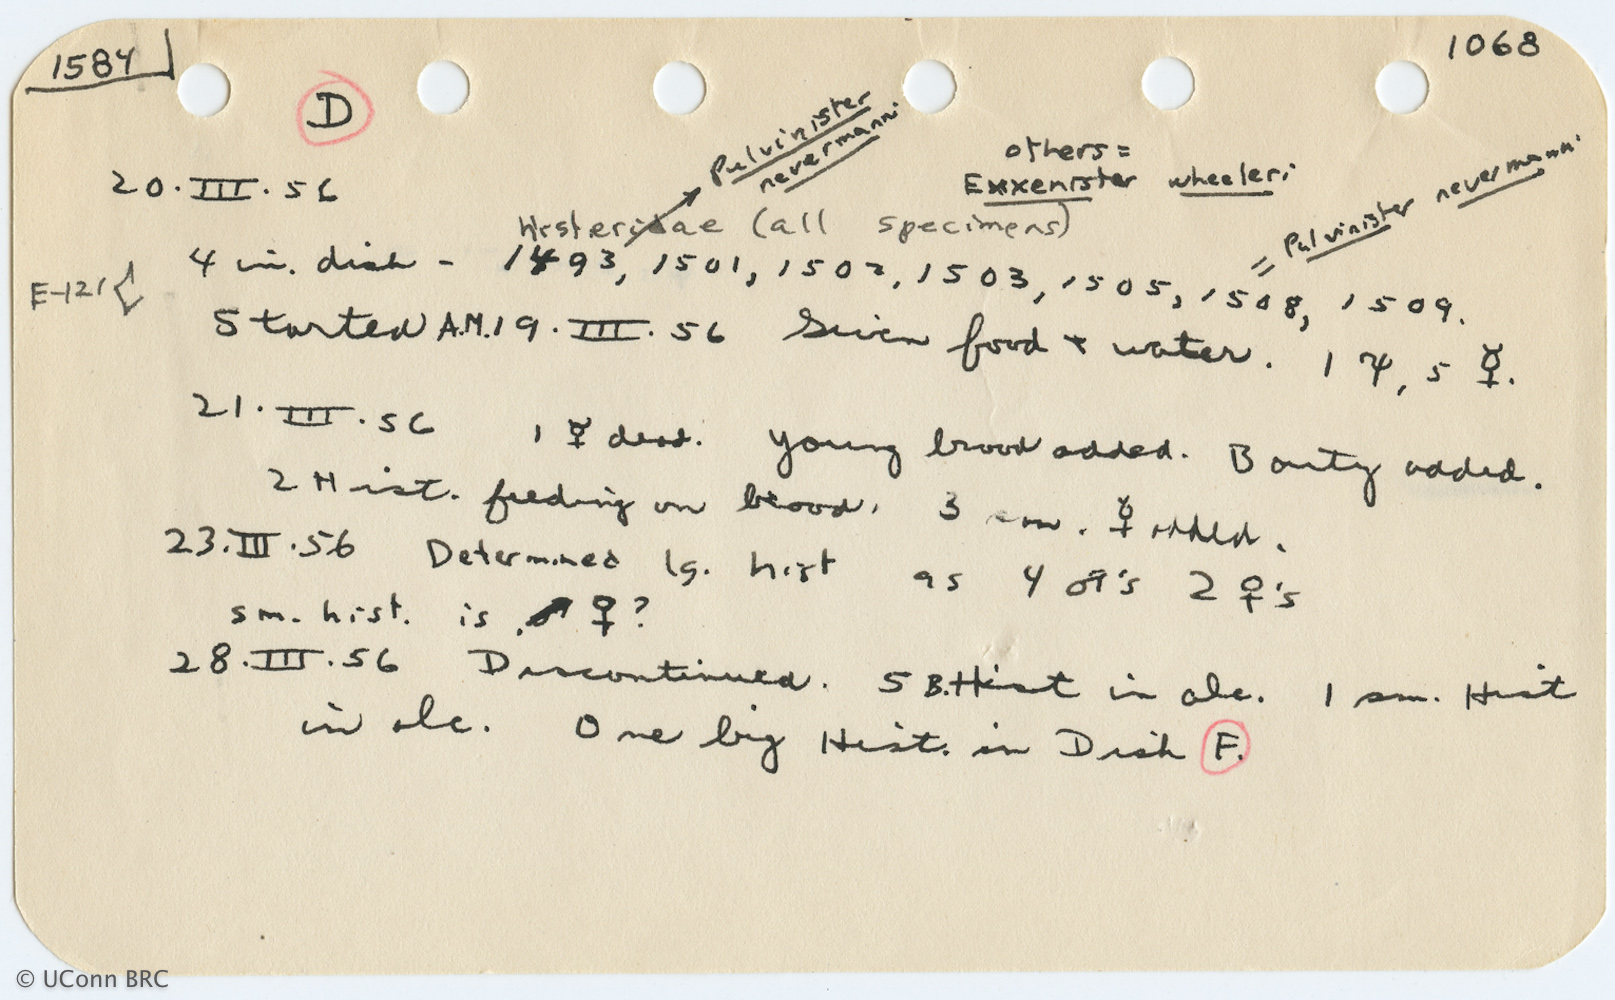 1584
1068
D
Pulvinister
nevermanni
others =
Exxenister wheeleri
20.III.56
Histeridae (all specimens)
= Pulvinister nevermanni
4 in. dish - 1493, 1501, 1502, 1503, 1505, 1508, 1509.
E-121
Started A.M. 19.III.56 Given food + water. 1 ♃, 5 ☿.
21.III.56 1 ☿ dead. Young brood added. Booty added.
2 Hist. feeding on brood. 3 sm. ☿ added.
23.III.56 Determined lg. hist as 4 ♂'s 2 ♀'s
sm. hist. is ♀?
28.III.56 Discontinued. 5 B. Hist in alc. 1 sm. Hist
in alc. One big Hist. in Dish F.
© UConn BRC